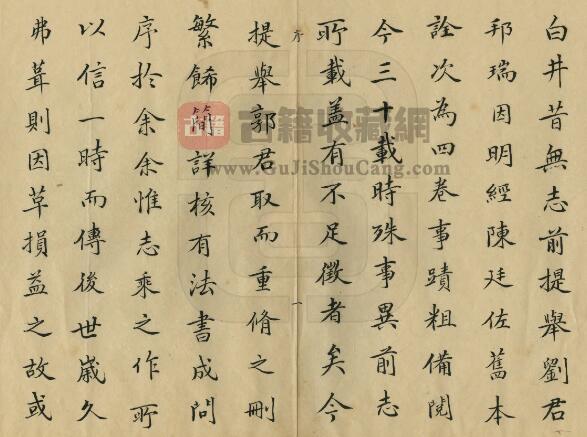 白井昔無志前提舉劉君
邦瑞因明經陳廷佐舊本
詮次為四卷事蹟粗備閱
今三十載時殊事異前志
所載盖有不足徵者矣今
序
一
提舉郭君取而重脩之刪
繁飾簡詳核有法書成問
序於余余惟志乘之作所
以信一時而傳後世歲久
弗葺則因草損益之故或
古籍
古籍收藏網
www.GuJiShouCang.com